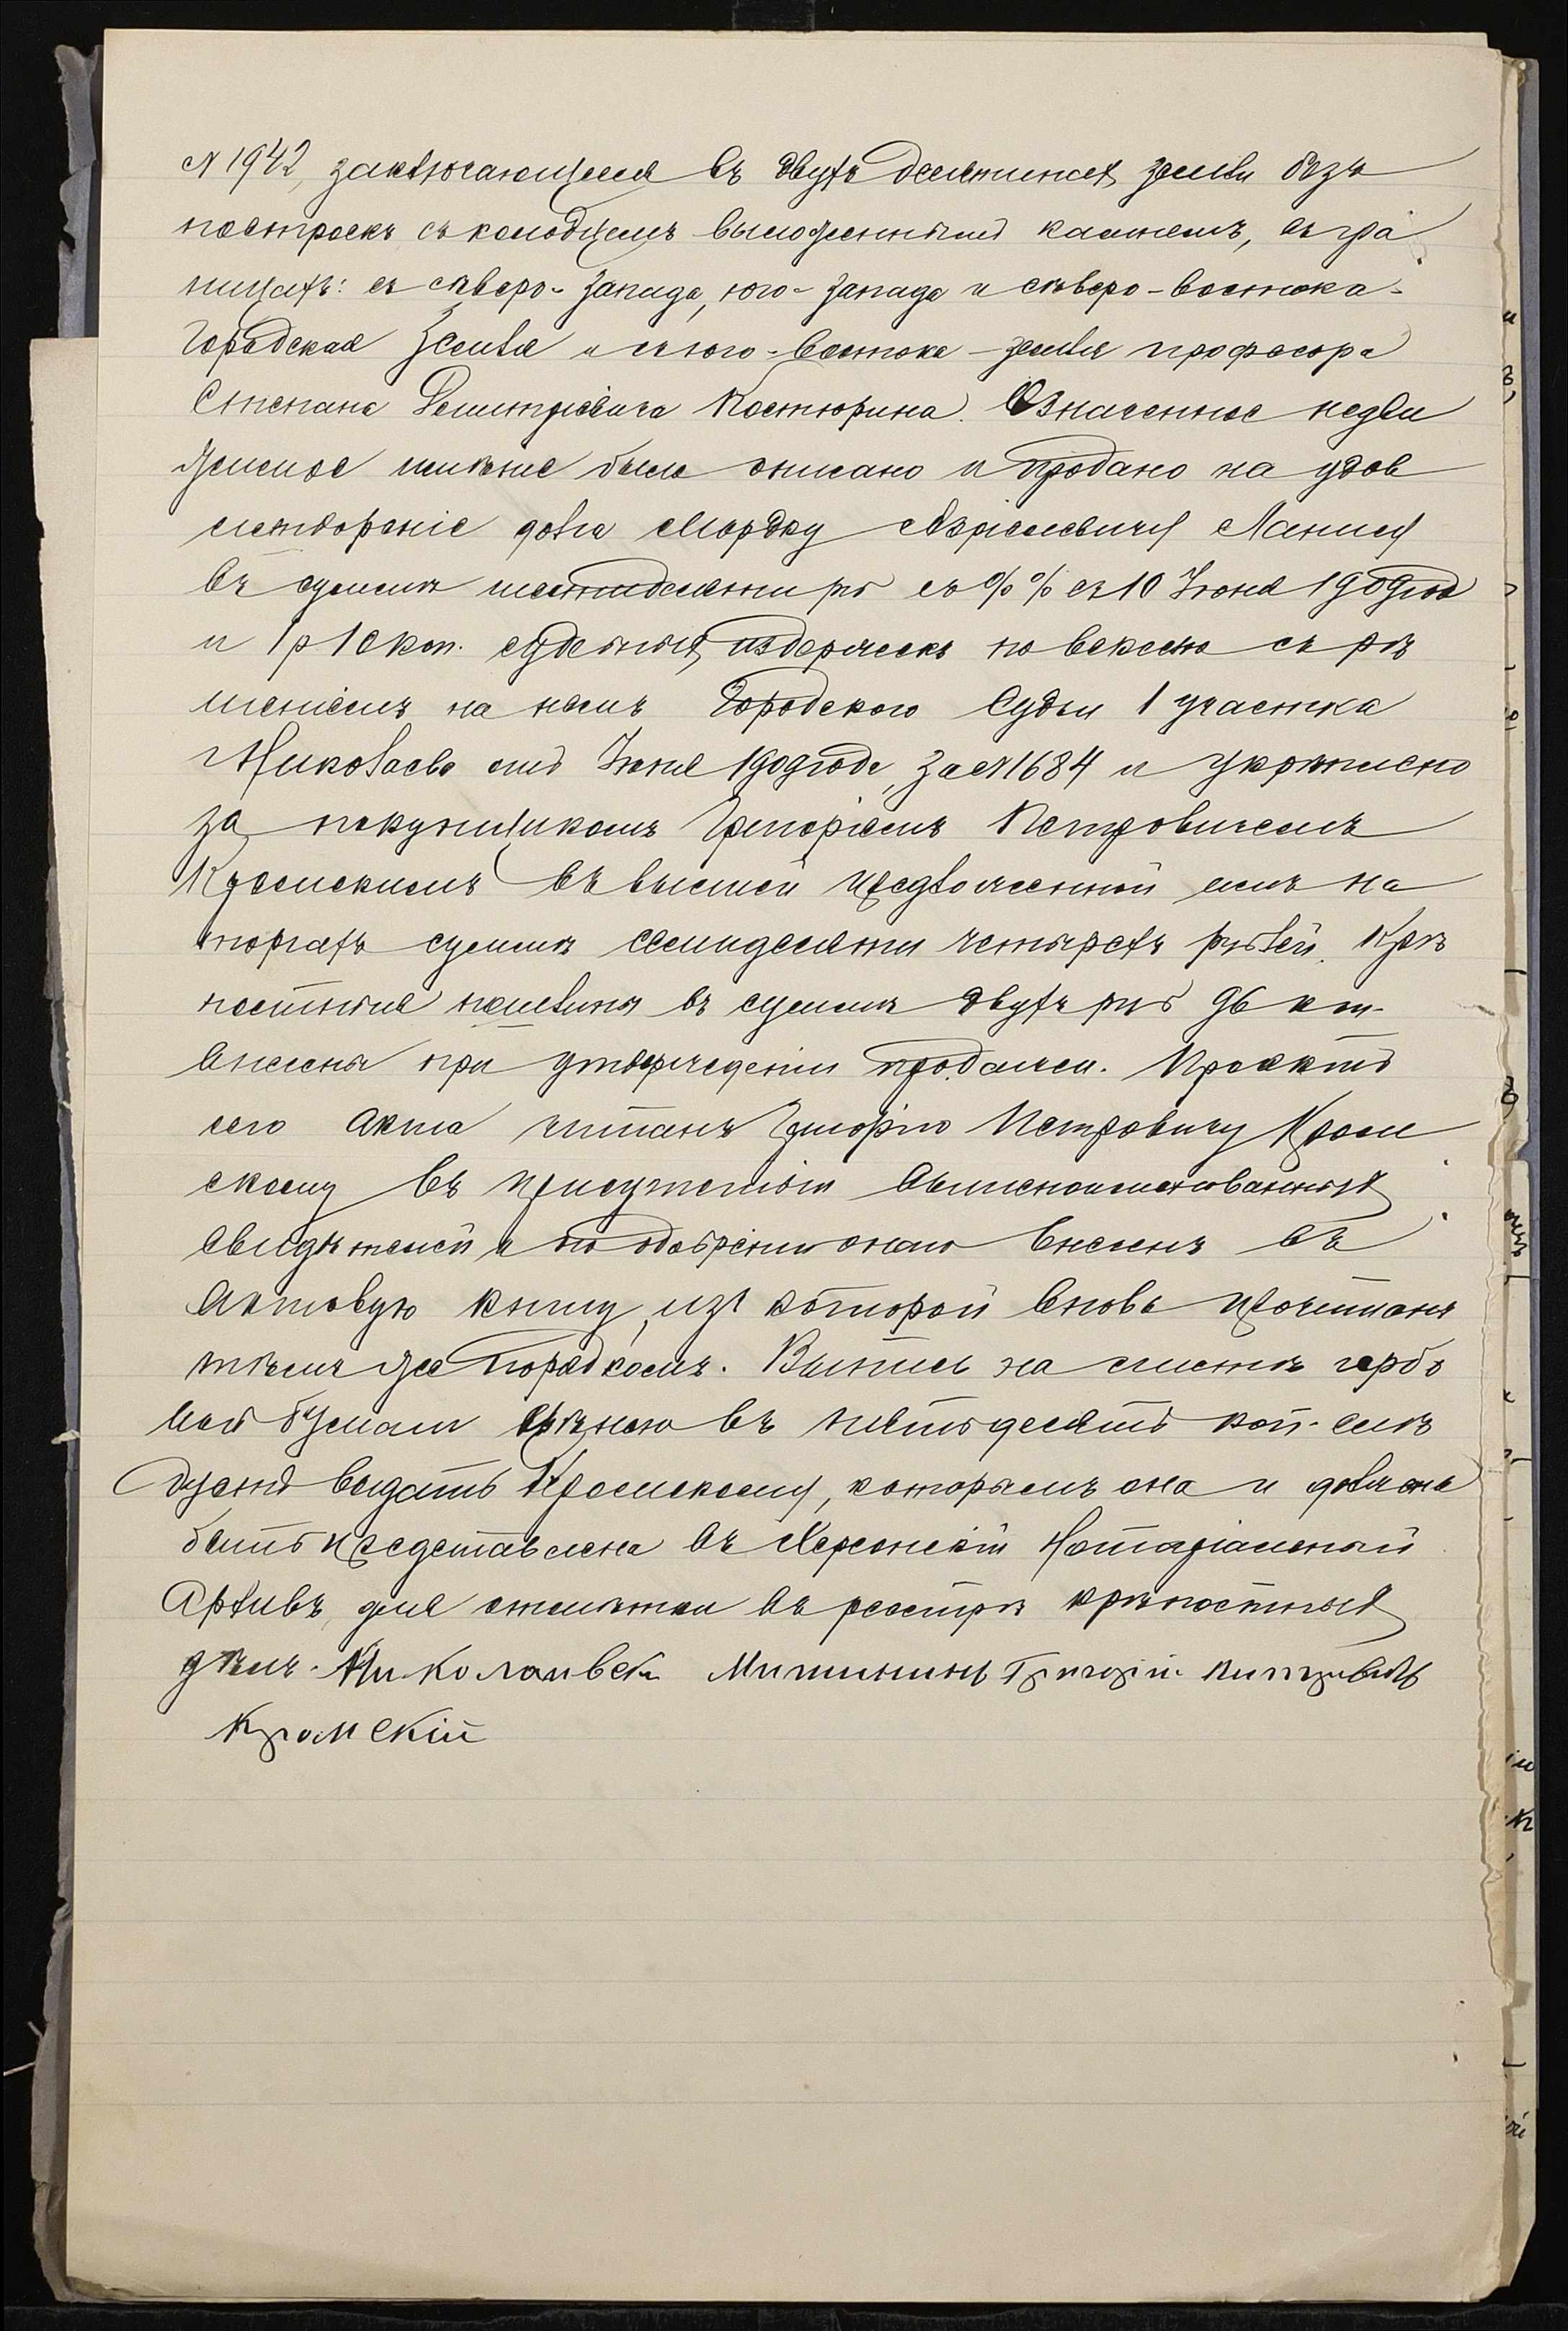 № 1942, заключающееся въ двухъ десятинах земли безъ
построекъ съ колодцемъ выложеннымъ камнемъ, въ гра
ницахъ: съ сѣверо-запада, юго-запада и сѣверо-востока-
городская земля и съ юго-востока - земля професора
Степана Демитріевича Костюрина. Означенное недви
жимое имѣние было описано и продано на удов
летвореніе долга Мордку Азріелевичу Ланису
въ суммѣ шестидесяти руб съ %% съ 10 Іюня 1909 года
и 1 р 10 коп. судебныхъ издержекъ по векселю съ рѣ
шеніемъ на немъ Городского Судьи 1 участка
Николаева отъ Іюня 1909 года, за № 1684 и укрѣплено
за покупщикомъ Григоріемъ Петровичемъ
Кромскимъ въ высшей предложенной имъ на
торгахъ суммѣ семидесяти четырехъ рублей. Крѣ
постныя пошлины въ суммѣ двухъ руб 96 коп.
внесены при утверждении продажи. Проектъ
сего акта читанъ Григорію Петровичу Кром
скому въ присутствіи вышепоименованныхъ
свидѣтелей и по одобреніи онаго внесенъ въ
актовую книгу, изъ которой вновь прочитанъ
тѣмъ же порядкомъ. Выпись на листѣ гербо
вой бумаги цѣною въ пятьдесятъ коп. слѣ
дуетъ выдать Кромскому, которымъ она и должна
быть представлена въ Херсонскій Нотаріальный
Архивъ для отмѣтки въ реестрѣ крѣпостныхъ
дѣлъ. Николаивски Мищининъ Григорій Питровичъ
Кромскій